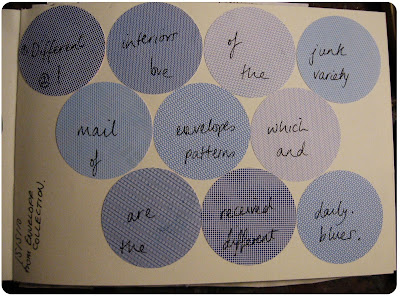 @Different
@ I
interiors
love
of
the
junk
variety
mail
of
envelopes
patterns
which
and
are
the
received
different
daily.
blues.
FROM ENVELOPE
COLLECTION.